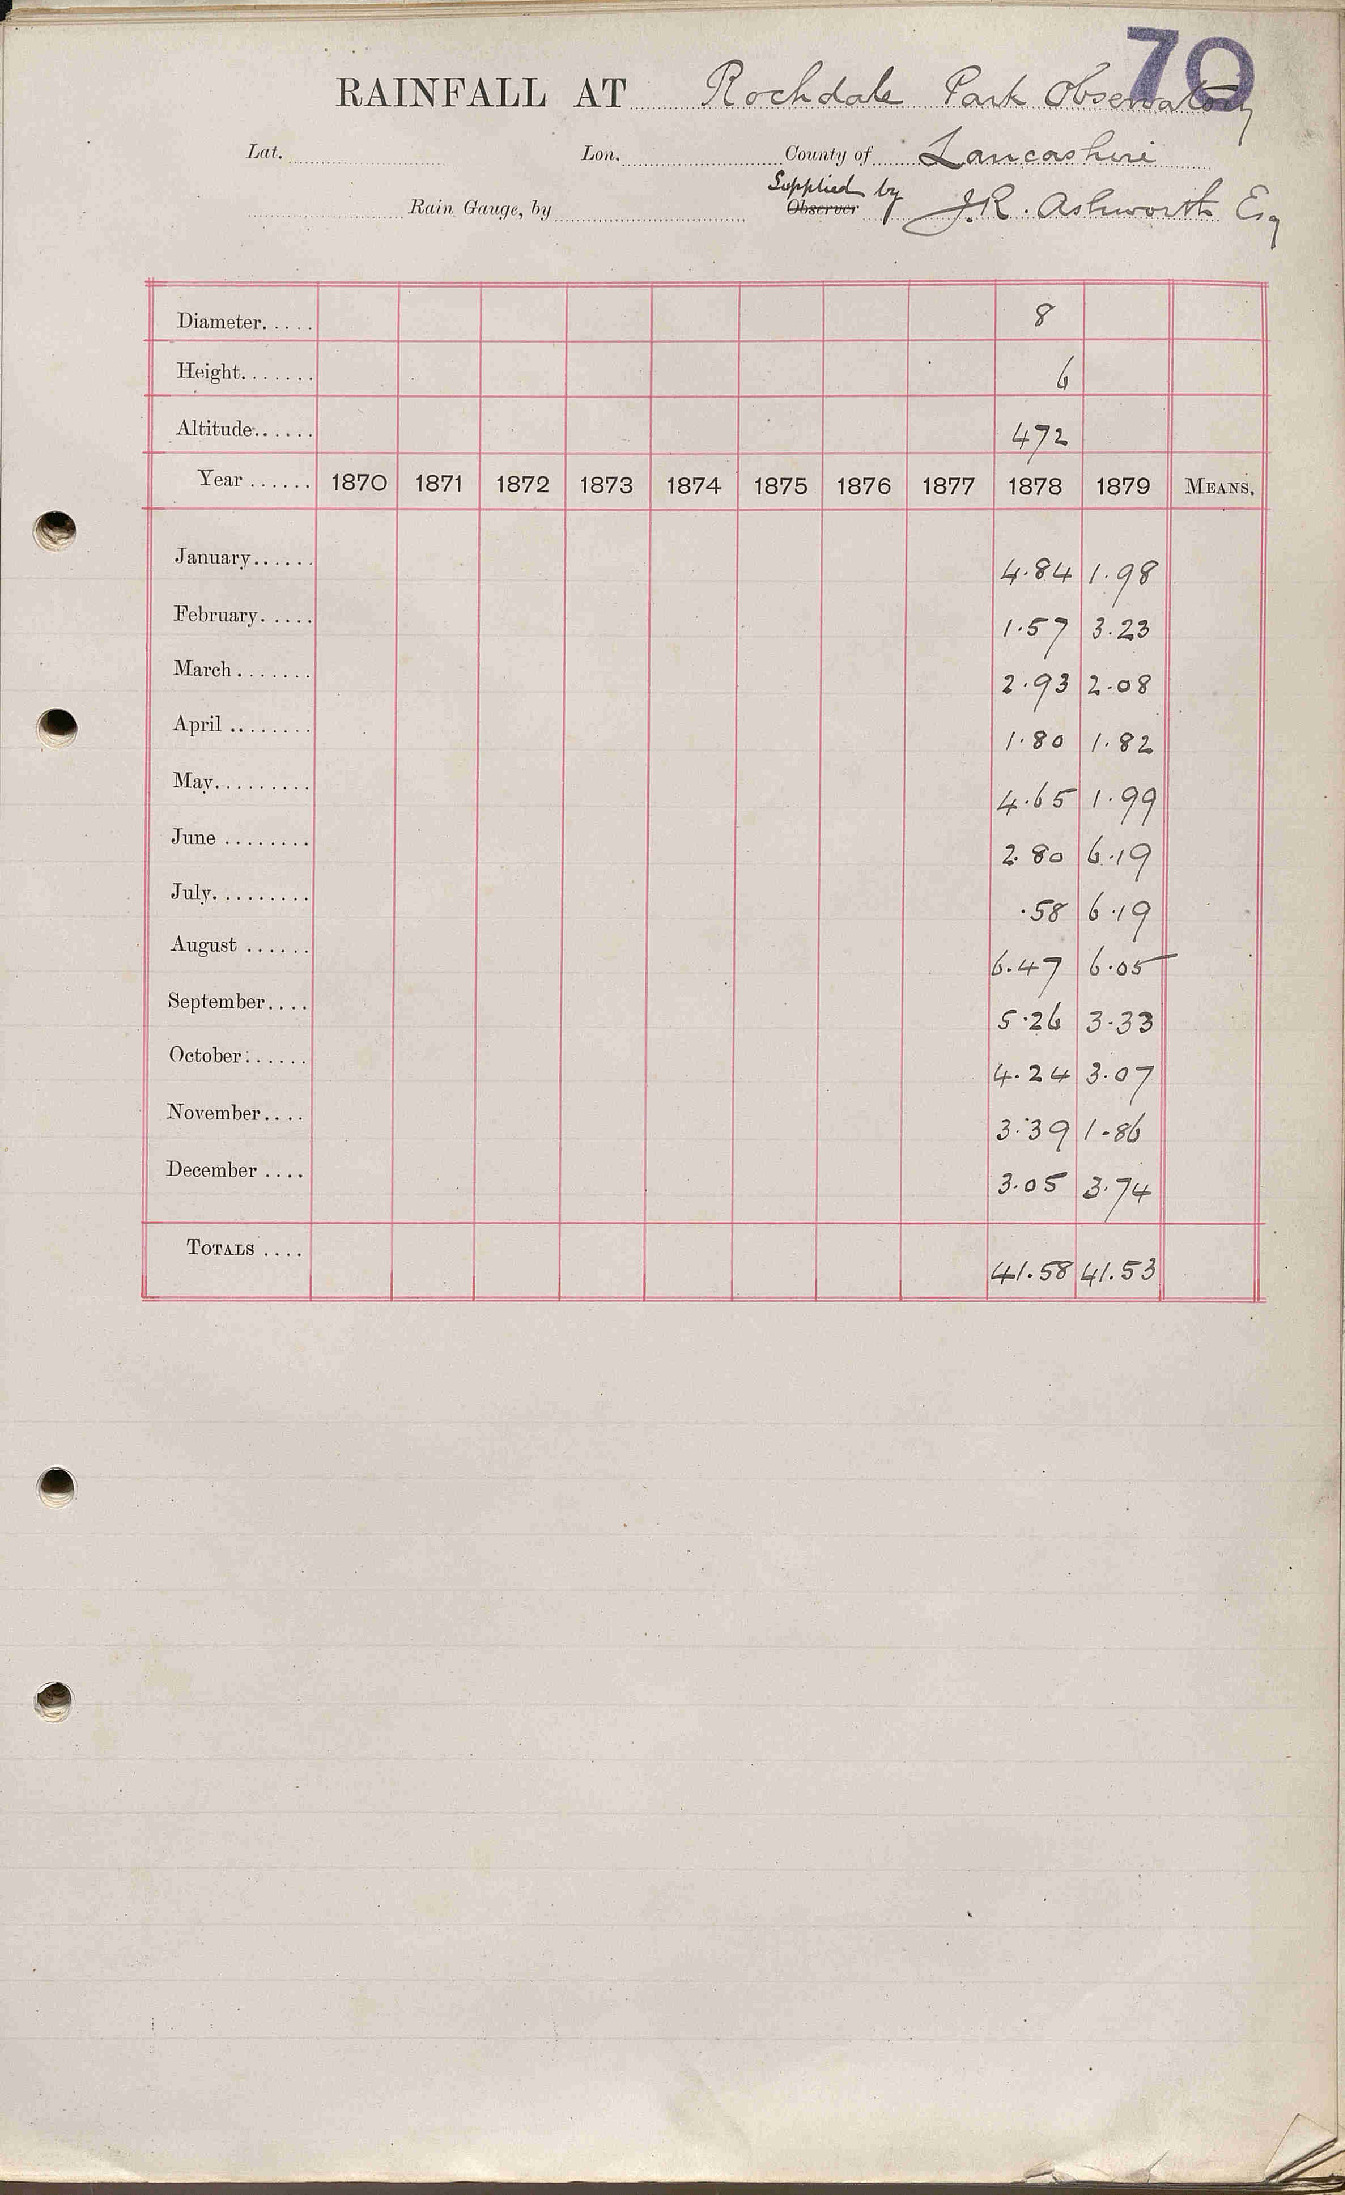 70
RAINFALL AT Rochdale Park Observatory
Lat. Lon. County of Lancashire
Rain Gauge, by Observer Supplied by J.R. Ashworth Esq
Diameter..... 8
Height....... 6
Altitude...... 472
Year ...... 1870 1871 1872 1873 1874 1875 1876 1877 1878 1879 MEANS.
January...... 4.84 1.98
February..... 1.57 3.23
March ....... 2.93 2.08
April ........ 1.80 1.82
May......... 4.65 1.99
June ........ 2.80 6.19
July......... .58 6.19
August ...... 6.47 6.05
September.... 5.26 3.33
October...... 4.24 3.07
November.... 3.39 1.86
December .... 3.05 3.74
TOTALS .... 41.58 41.53